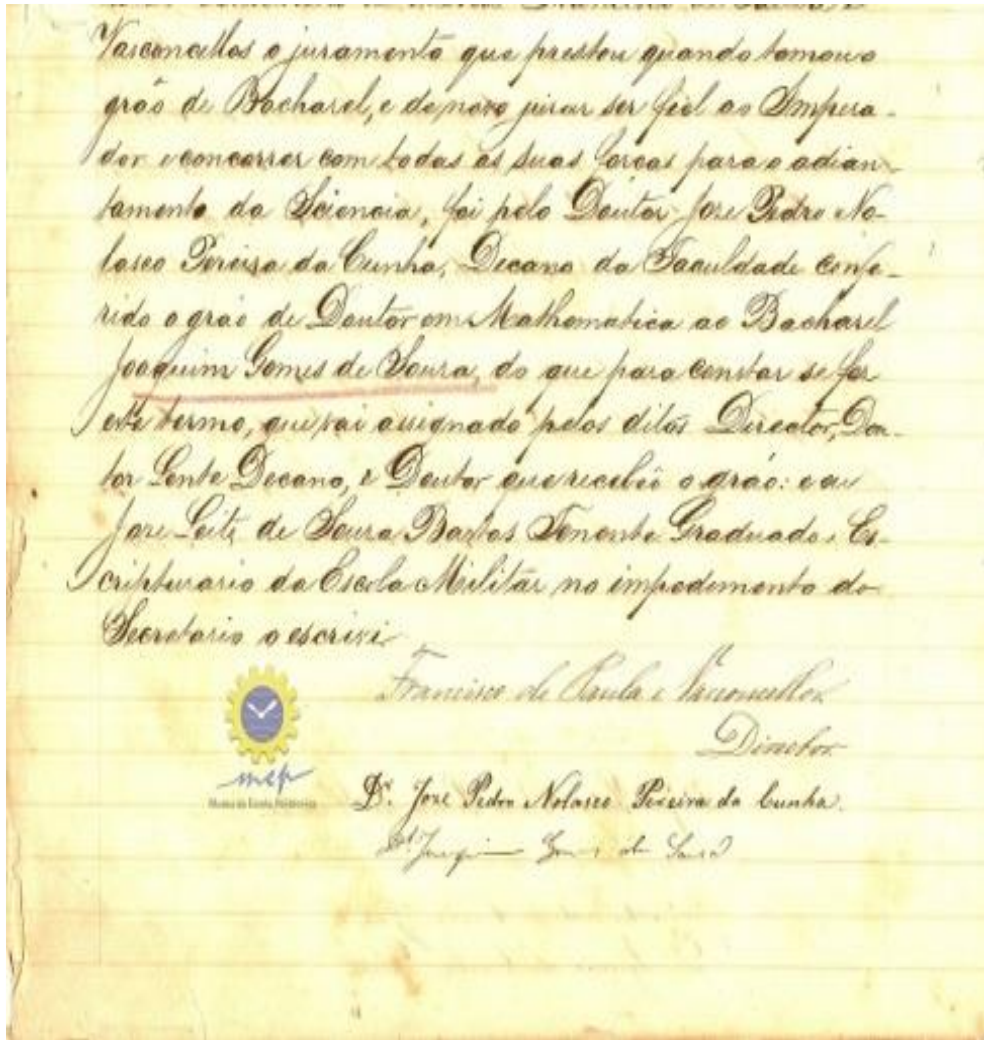 Francisco de Paula e
Vasconcellos o juramento que prestou quando tomou o
gráo de Bacharel, e de novo jurar ser fiel ao Impera-
dor e concorrer com todas as suas forças para o adian-
tamento da Sciencia, foi pelo Doutor Joze Pedro No-
lasco Pereira da Cunha, Decano da Faculdade confe-
rido o gráo de Doutor em Mathematica ao Bacharel
Joaquim Gomes de Souza, do que para constar se fez
este termo, que vai assignado pelos ditos Director, Dou-
tor Lente Decano, e Doutor que recebêo o gráo: e eu
Joze Leite de Souza Bastos Tenente Graduado, Es-
cripturario da Escola Militar no impedimento do
Secretario o escrivi
Francisco de Paula e Vasconcellos
Director
mep
Museu da Escola Politécnica
Dr. Joze Pedro Nolasco Pereira da Cunha.
Dr. Joaquim Gomes de Souza